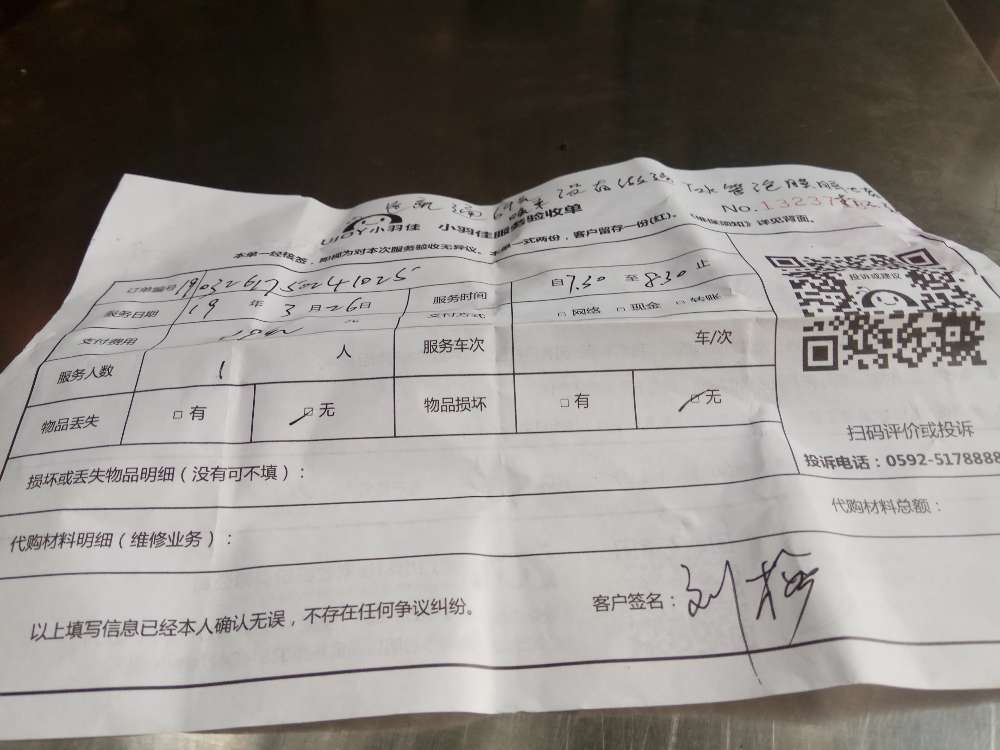 UJOY小羽佳 小羽佳服务验收单
No.13237
本单一经核签，即视为对本次服务验收无异议。本单一式两份，客户留存一份(红)。《维保须知》详见背面。
订单编号 19032617502241025 服务时间 自7.30 至 8.30 止
服务日期 19 年 3 月 26 日 支付方式 □ 网络 □ 现金 □ 转账
支付费用 元
服务人数 1 人 服务车次 车/次
物品丢失 □ 有 ☑ 无 物品损坏 □ 有 ☑ 无
投诉或建议
扫码评价或投诉
投诉电话：0592-5178888
损坏或丢失物品明细（没有可不填）：
代购材料明细（维修业务）： 代购材料总额：
以上填写信息已经本人确认无误，不存在任何争议纠纷。 客户签名：刘